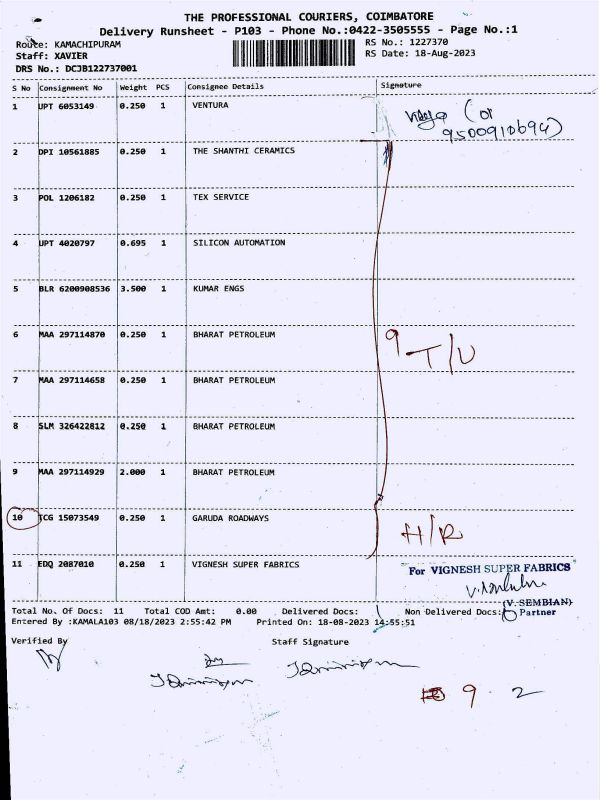 THE PROFESSIONAL COURIERS, COIMBATORE
Delivery Runsheet - P103 - Phone No.:0422-3505555 - Page No.:1
Route: KAMACHIPURAM RS No.: 1227370
Staff: XAVIER RS Date: 18-Aug-2023
DRS No.: DCJB122737001
S No Consignment No Weight PCS Consignee Details Signature
1 UPT 6053149 0.250 1 VENTURA
(or
9500910694)
2 DPI 10561885 0.250 1 THE SHANTHI CERAMICS
3 POL 1206182 0.250 1 TEX SERVICE
4 UPT 4020797 0.695 1 SILICON AUTOMATION
5 BLR 6200908536 3.500 1 KUMAR ENGS
6 MAA 297114870 0.250 1 BHARAT PETROLEUM 9 T/U
7 MAA 297114658 0.250 1 BHARAT PETROLEUM
8 SLM 326422812 0.250 1 BHARAT PETROLEUM
9 MAA 297114929 2.000 1 BHARAT PETROLEUM
10 TCG 15073549 0.250 1 GARUDA ROADWAYS H/R
11 EDQ 2087010 0.250 1 VIGNESH SUPER FABRICS For VIGNESH SUPER FABRICS
(V. SEMBIAN)
Partner
Total No. Of Docs: 11 Total COD Amt: 0.00 Delivered Docs: Non Delivered Docs:
Entered By :KAMALA103 08/18/2023 2:55:42 PM Printed On: 18-08-2023 14:55:51
Verified By Staff Signature
9 . 2